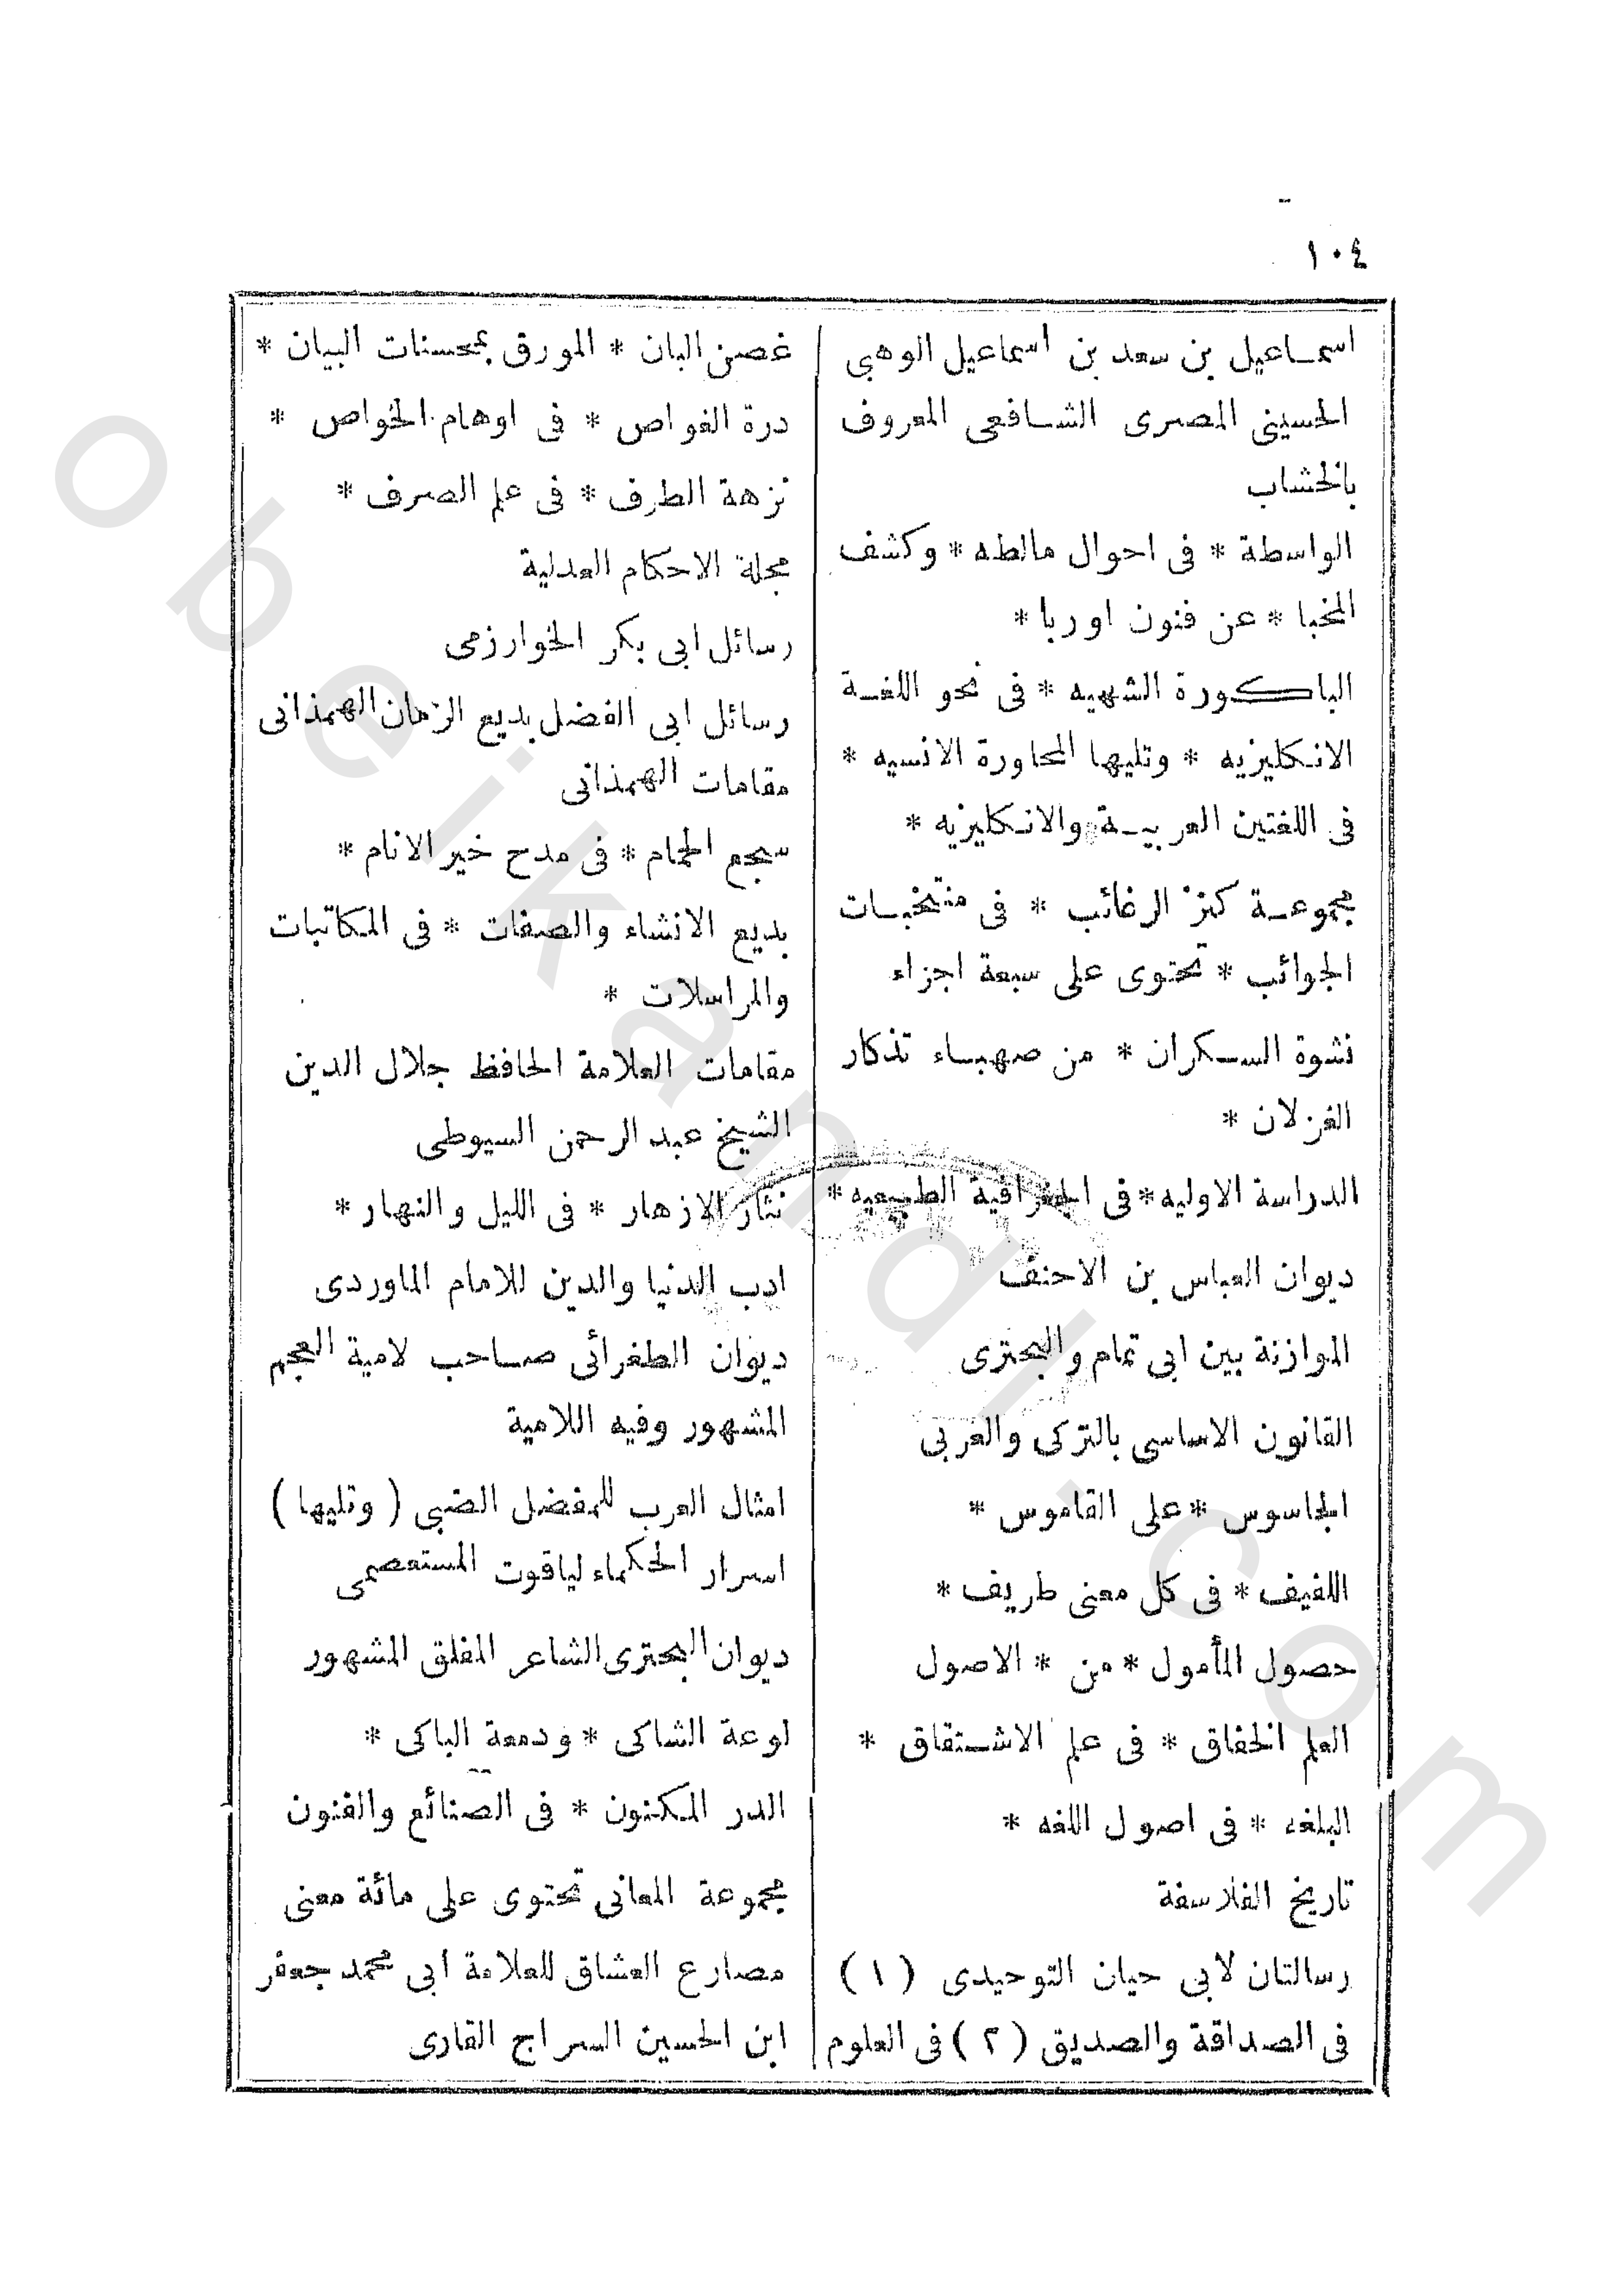 ١٠٤
اسماعيل بن سعد بن اسماعيل الوهبى
الحسينى المصرى الشافعى المعروف
بالخشاب
الواسطة * فى احوال مالطه * وكشف
المخبا * عن فنون اوربا *
الباكورة الشهيه * فى نحو اللغة
الانكليزيه * وتليها المحاورة الانسيه *
فى اللغتين العربية والانكليزيه *
مجموعة كنز الرغائب * فى منتخبات
الجوائب * تحتوى على سبعة اجزاء
نشوة السكران * من صهباء تذكار
الغزلان *
الدراسة الاوليه * فى الجغرافية الطبيعيه *
ديوان العباس بن الاحنف
الموازنة بين ابى تمام والبحترى
القانون الاساسى بالتركى والعربى
الجاسوس * على القاموس *
اللفيف * فى كل معنى طريف *
حصول المأمول * من * الاصول
العلم الخفاق * فى علم الاشتقاق *
البلغه * فى اصول اللغه *
تاريخ الفلاسفة
رسالتان لابى حيان التوحيدى ( ١ )
فى الصداقة والصديق ( ٢ ) فى العلوم
غصن البان * المورق بمحسنات البيان *
درة الغواص * فى اوهام الخواص *
نزهة الطرف * فى علم الصرف *
مجلة الاحكام العدلية
رسائل ابى بكر الخوارزمى
رسائل ابى الفضل بديع الزمان الهمذانى
مقامات الهمذانى
سجع الحمام * فى مدح خير الانام *
بديع الانشاء والصفات * فى المكاتبات
والمراسلات *
مقامات العلامة الحافظ جلال الدين
الشيخ عبد الرحمن السيوطى
نثار الازهار * فى الليل والنهار *
ادب الدنيا والدين للامام الماوردى
ديوان الطغرائى صاحب لامية العجم
المشهور وفيه اللامية
امثال العرب للمفضل الضبى ( وتليها )
اسرار الحكماء لياقوت المستعصمى
ديوان البحترى الشاعر المفلق المشهور
لوعة الشاكى * ودمعة الباكى *
الدر المكنون * فى الصنائع والفنون
مجموعة المعانى تحتوى على مائة معنى
مصارع العشاق للعلامة ابى محمد جعفر
ابن الحسين السراج القارى
obeikandl.com